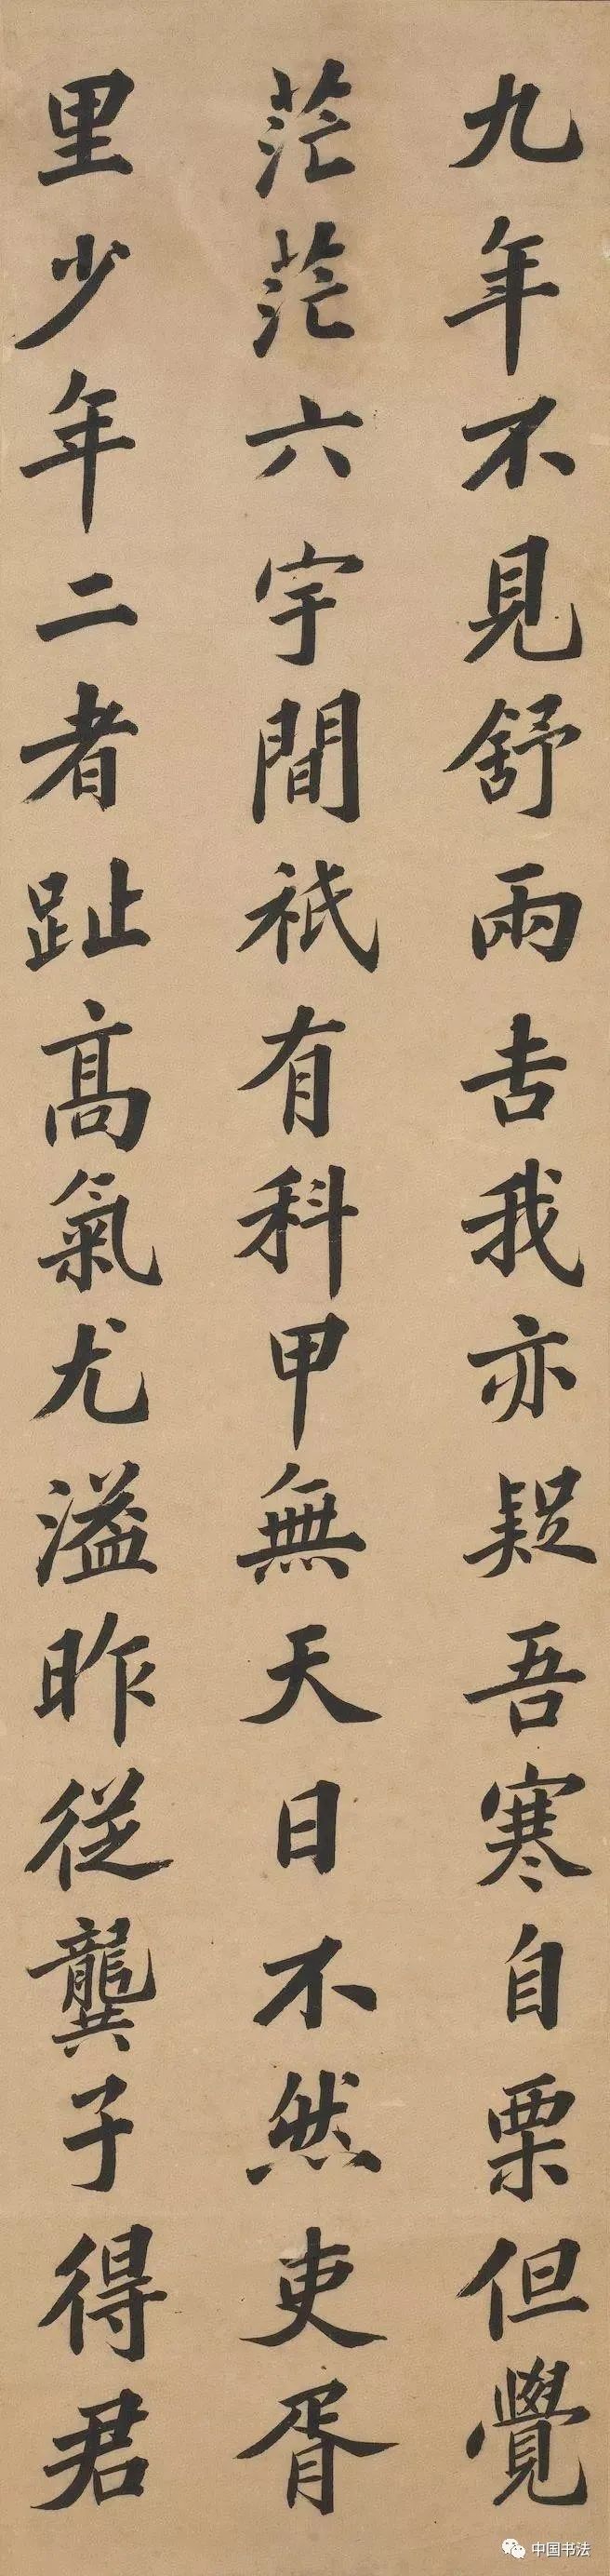 九年不見舒兩吉我亦疑吾寒自栗但覺
茫茫六宇間祇有科甲無天日不然吏胥
里少年二者趾高氣尤溢昨從龔子得君
中国书法